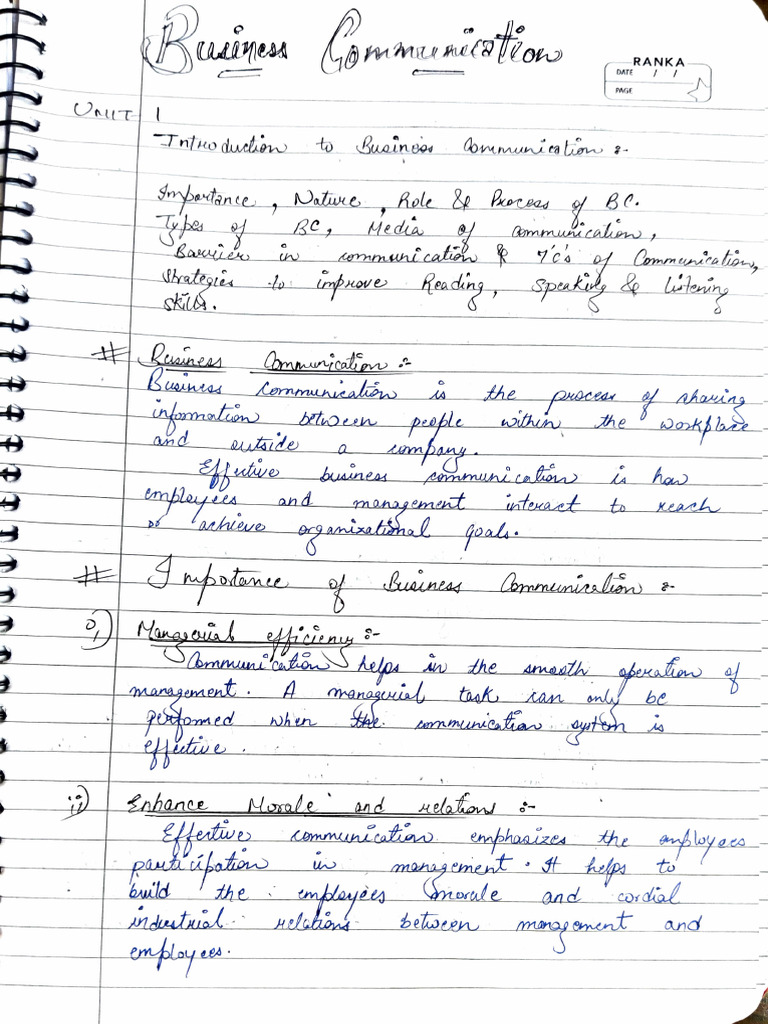 Business Communication
RANKA
DATE / /
PAGE
UNIT 1
Introduction to Business Communication :-
Importance, Nature, Role & Process of BC.
Types of BC, Media of communication,
Barrier in communication & 7'c's of Communication,
Strategies to improve Reading, Speaking & listening
skills.
# Business Communication :-
Business communication is the process of sharing
information between people within the workplace
and outside a company.
Effective business communication is how
employees and management interact to reach
achieve organizational goals.
# Importance of Business Communication :-
i) Managerial efficiency :-
Communication helps in the smooth operation of
management. A managerial task can only be
performed when the communication system is
effective.
ii) Enhance Morale and relations :-
Effective communication emphasizes the employees
participation in management. It helps to
build the employees morale and cordial
industrial relations between management and
employees.